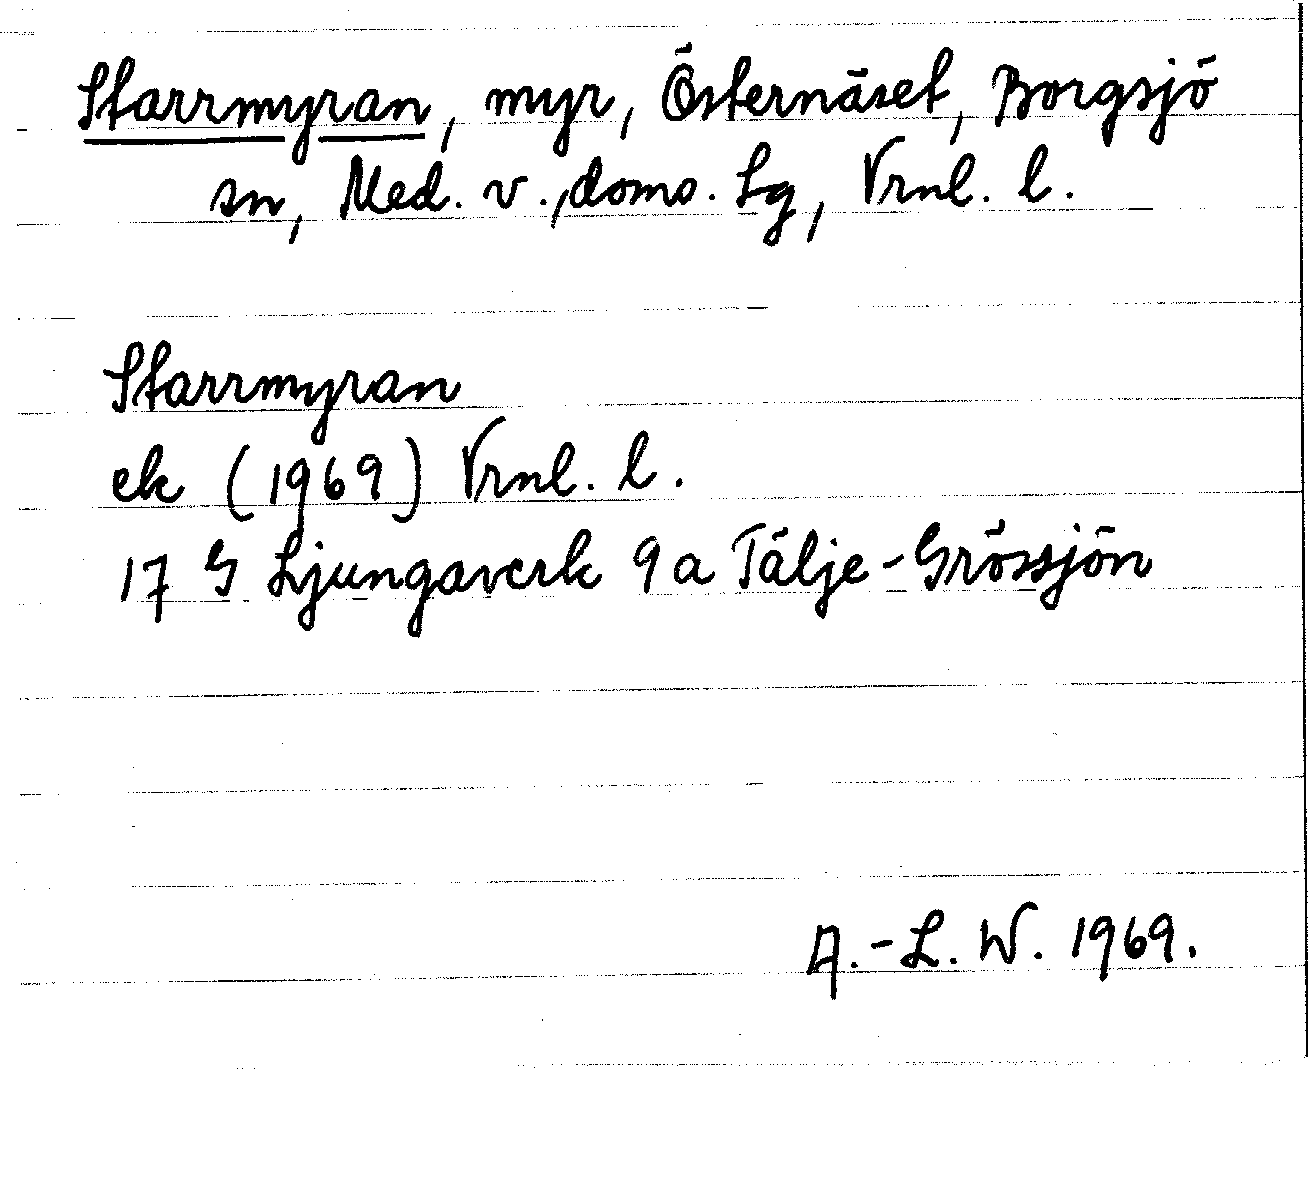 Starrmyran, myr, Östernäset, Borgsjö
sn, Med. v., doms. Lg, Vrnl. l.
Starrmyran
ek (1969) Vrnl. l.
17 G Ljungaverk 9a Tälje-Grössjön
A.-L. W. 1969.